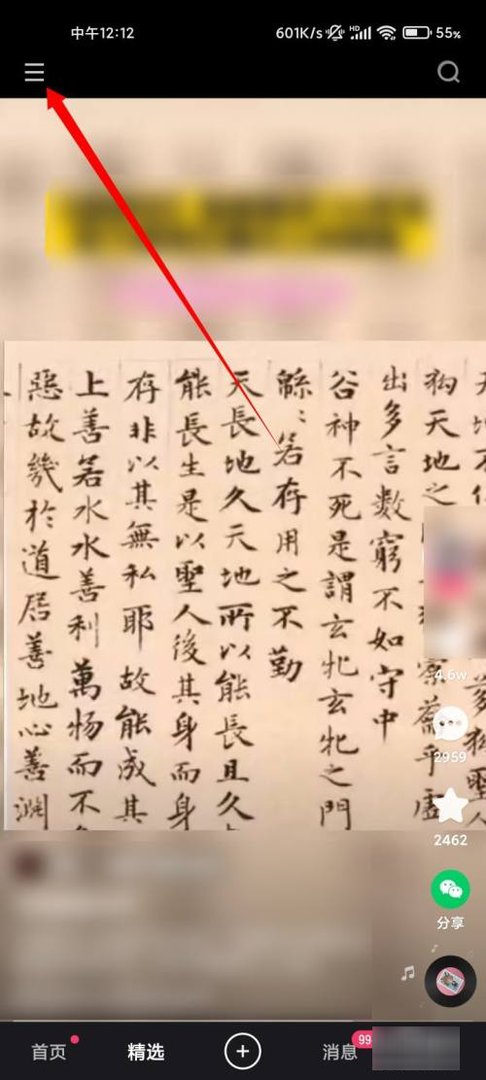 中午12:12
601K/s
HD
55%
狗天地之
橐籥乎虛
出多言數窮不如守中
谷神不死是謂玄牝玄牝之門
緜〻若存用之不勤
天長地久天地所以能長且久
能長生是以聖人後其身而身
存非以其無私耶故能成其
上善若水水善利萬物而不
惡故幾於道居善地心善淵
4.6w
2959
2462
分享
首页
精选
消息
99